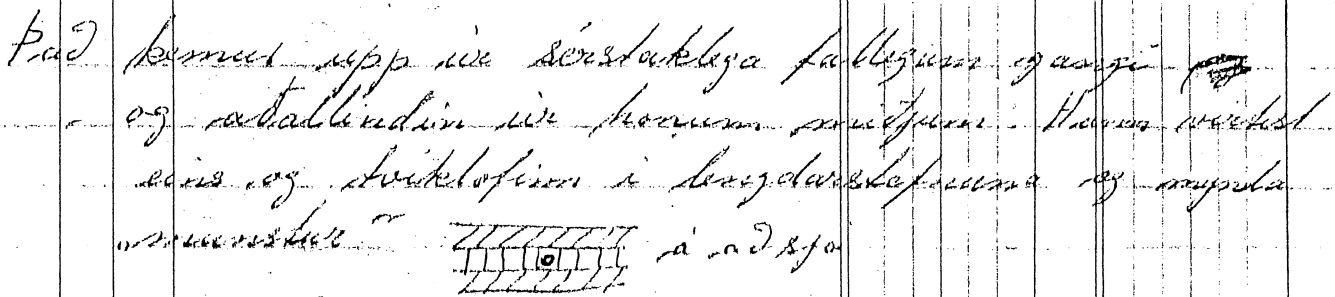 Það kemur upp úr sérstaklega fallegum gangi
og aðallindin úr honum miðjum. Hann virðist
eins og tvíklofinn í lengdarstefnuna og mynda
„munstur“ á að sjá